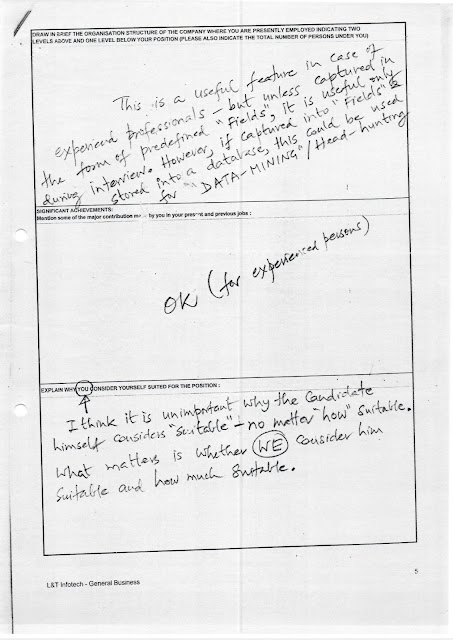 DRAW IN BRIEF THE ORGANISATION STRUCTURE OF THE COMPANY WHERE YOU ARE PRESENTLY EMPLOYED INDICATING TWO
LEVELS ABOVE AND ONE LEVEL BELOW YOUR POSITION (PLEASE ALSO INDICATE THE TOTAL NUMBER OF PERSONS UNDER YOU)
This is a useful feature in case of
experienced professionals - but unless captured in
the form of predefined "Fields", it is useful only
during interview. However, if captured into "Fields" &
stored into a database, this could be used
for "DATA-MINING" / Head-hunting
SIGNIFICANT ACHIEVEMENTS:
Mention some of the major contribution by you in your present and previous jobs :
OK (for experienced persons)
EXPLAIN WHY YOU CONSIDER YOURSELF SUITED FOR THE POSITION :
I think it is unimportant why the candidate
himself considers "suitable" - no matter "how" suitable.
What matters is whether WE consider him
suitable and how much suitable.
5
L&T Infotech - General Business